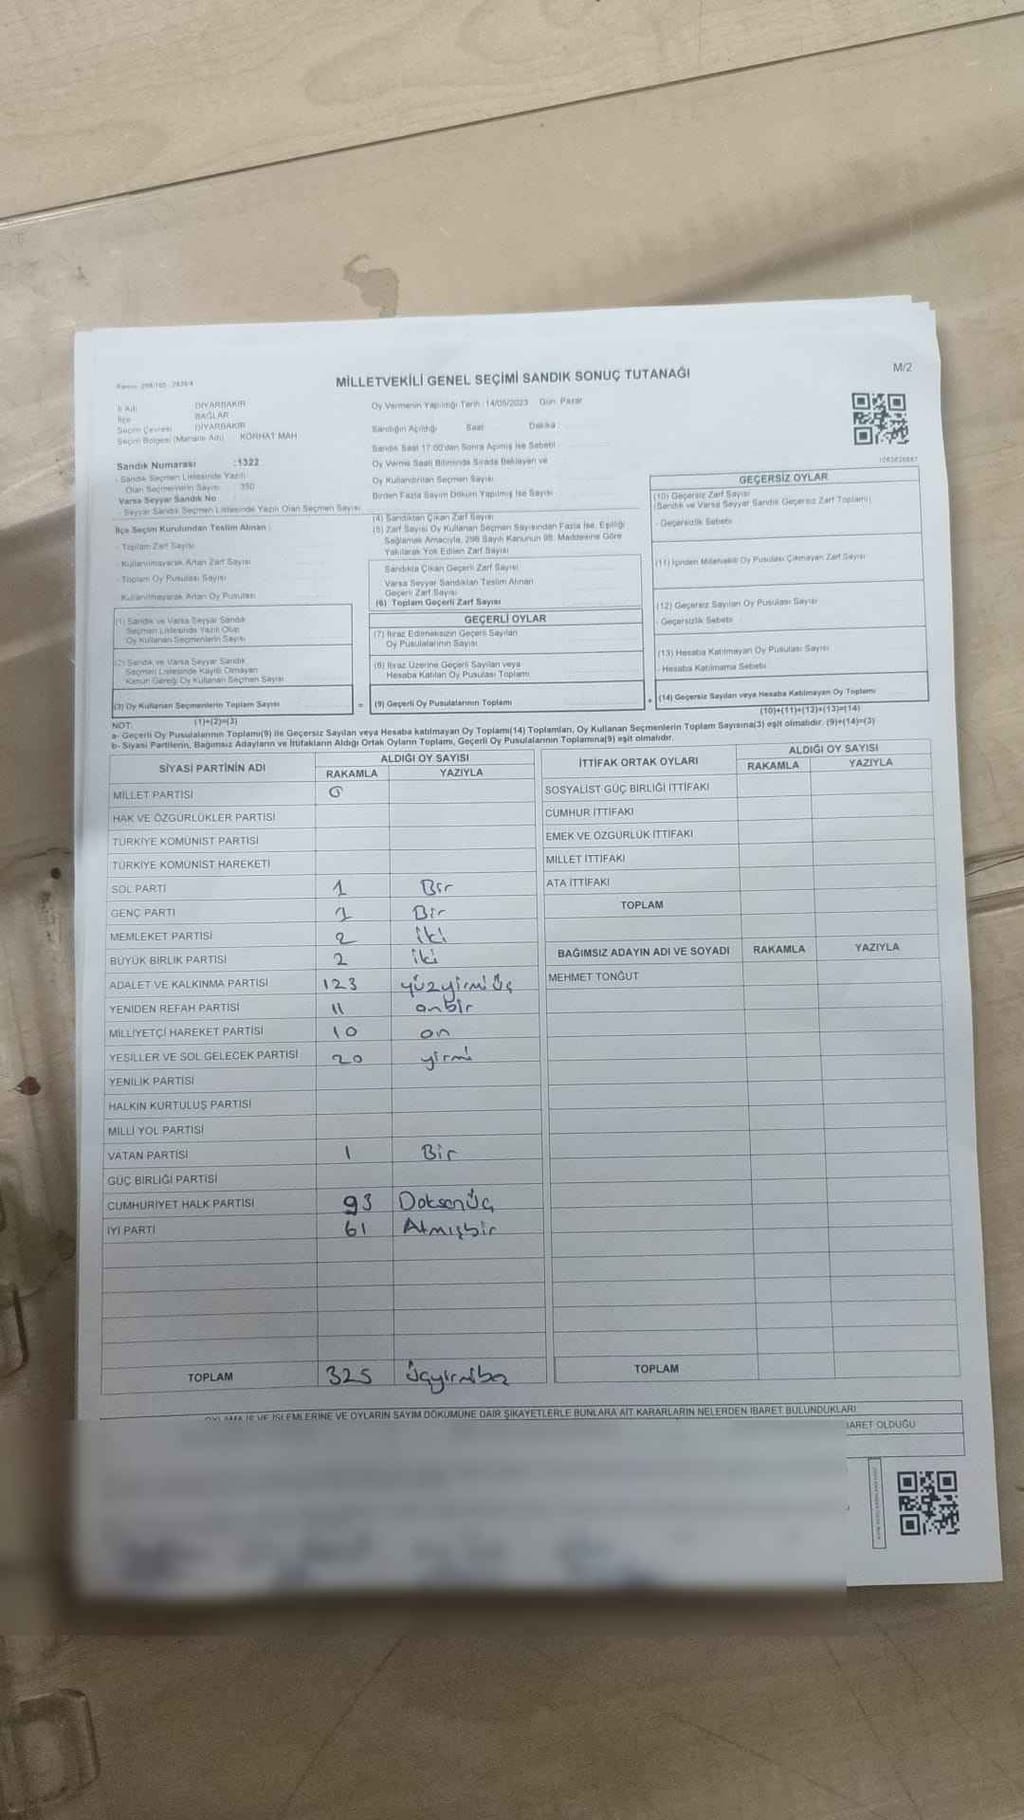 MİLLETVEKİLİ GENEL SEÇİMİ SANDIK SONUÇ TUTANAĞI
M/2
İl Adı DİYARBAKIR
İlçe BAĞLAR
Seçim Çevresi DİYARBAKIR
Seçim Bölgesi (Mahalle Adı) KORHAT MAH
Sandık Numarası :1322
- Sandık Seçmen Listesinde Yazılı
Olan Seçmenlerin Sayısı 350
Varsa Seyyar Sandık No
- Seyyar Sandık Seçmen Listesinde Yazılı Olan Seçmen Sayısı
Oy Vermenin Yapıldığı Tarih :14/05/2023 Gün: Pazar
Sandığın Açıldığı Saat Dakika :
Sandık Saat 17:00'dan Sonra Açılmış İse Sebebi
Oy Verme Saati Bitiminde Sırada Bekleyen ve
Oy Kullandırılan Seçmen Sayısı
Birden Fazla Sayım Döküm Yapılmış İse Sayısı
İlçe Seçim Kurulundan Teslim Alınan :
- Toplam Zarf Sayısı
- Kullanılmayarak Artan Zarf Sayısı
- Toplam Oy Pusulası Sayısı
- Kullanılmayarak Artan Oy Pusulası
(1) Sandık ve Varsa Seyyar Sandık
Seçmen Listesinde Yazılı Olup
Oy Kullanan Seçmenlerin Sayısı
(2) Sandık ve Varsa Seyyar Sandık
Seçmen Listesinde Kayıtlı Olmayan
Kanun Gereği Oy Kullanan Seçmen Sayısı
(3) Oy Kullanan Seçmenlerin Toplam Sayısı
(1)+(2)=(3)
(4) Sandıktan Çıkan Zarf Sayısı
(5) Zarf Sayısı Oy Kullanan Seçmen Sayısından Fazla İse, Eşitliği
Sağlamak Amacıyla, 298 Sayılı Kanunun 98. Maddesine Göre
Yakılarak Yok Edilen Zarf Sayısı
Sandıkta Çıkan Geçerli Zarf Sayısı
Varsa Seyyar Sandıktan Teslim Alınan
Geçerli Zarf Sayısı
(6) Toplam Geçerli Zarf Sayısı
GEÇERLİ OYLAR
(7) İtiraz Edilmeksizin Geçerli Sayılan
Oy Pusulalarının Sayısı
(8) İtiraz Üzerine Geçerli Sayılan veya
Hesaba Katılan Oy Pusulası Toplamı
= (9) Geçerli Oy Pusulalarının Toplamı
GEÇERSİZ OYLAR
(10) Geçersiz Zarf Sayısı
(Sandık ve Varsa Seyyar Sandık Geçersiz Zarf Toplamı)
- Geçersizlik Sebebi
(11) İçinden Milletvekili Oy Pusulası Çıkmayan Zarf Sayısı
(12) Geçersiz Sayılan Oy Pusulası Sayısı
- Geçersizlik Sebebi
(13) Hesaba Katılmayan Oy Pusulası Sayısı
- Hesaba Katılmama Sebebi
+ (14) Geçersiz Sayılan veya Hesaba Katılmayan Oy Toplamı
(10)+(11)+(12)+(13)=(14)
NOT:
a- Geçerli Oy Pusulalarının Toplamı(9) ile Geçersiz Sayılan veya Hesaba katılmayan Oy Toplamı(14) Toplamları, Oy Kullanan Seçmenlerin Toplam Sayısına(3) eşit olmalıdır. (9)+(14)=(3)
b- Siyasi Partilerin, Bağımsız Adayların ve İttifakların Aldığı Ortak Oyların Toplamı, Geçerli Oy Pusulalarının Toplamına(9) eşit olmalıdır.
SİYASİ PARTİNİN ADI ALDIĞI OY SAYISI
RAKAMLA YAZIYLA
MİLLET PARTİSİ 0
HAK VE ÖZGÜRLÜKLER PARTİSİ
TÜRKİYE KOMÜNİST PARTİSİ
TÜRKİYE KOMÜNİST HAREKETİ
SOL PARTİ 1 Bir
GENÇ PARTİ 1 Bir
MEMLEKET PARTİSİ 2 iki
BÜYÜK BİRLİK PARTİSİ 2 iki
ADALET VE KALKINMA PARTİSİ 123 yüzyirmiüç
YENİDEN REFAH PARTİSİ 11 onbir
MİLLİYETÇİ HAREKET PARTİSİ 10 on
YEŞİLLER VE SOL GELECEK PARTİSİ 20 yirmi
YENİLİK PARTİSİ
HALKIN KURTULUŞ PARTİSİ
MİLLİ YOL PARTİSİ
VATAN PARTİSİ 1 Bir
GÜÇ BİRLİĞİ PARTİSİ
CUMHURİYET HALK PARTİSİ 93 Doksanüç
İYİ PARTİ 61 Atmışbir
TOPLAM 325
İTTİFAK ORTAK OYLARI ALDIĞI OY SAYISI
RAKAMLA YAZIYLA
SOSYALİST GÜÇ BİRLİĞİ İTTİFAKI
CUMHUR İTTİFAKI
EMEK VE ÖZGÜRLÜK İTTİFAKI
MİLLET İTTİFAKI
ATA İTTİFAKI
TOPLAM
BAĞIMSIZ ADAYIN ADI VE SOYADI RAKAMLA YAZIYLA
MEHMET TONĞUT
TOPLAM
İŞLEMLERİNE VE OYLARIN SAYIM DÖKÜMÜNE DAİR ŞİKAYETLERLE BUNLARA AİT KARARLARIN NELERDEN İBARET BULUNDUKLARI
İBARET OLDUĞU